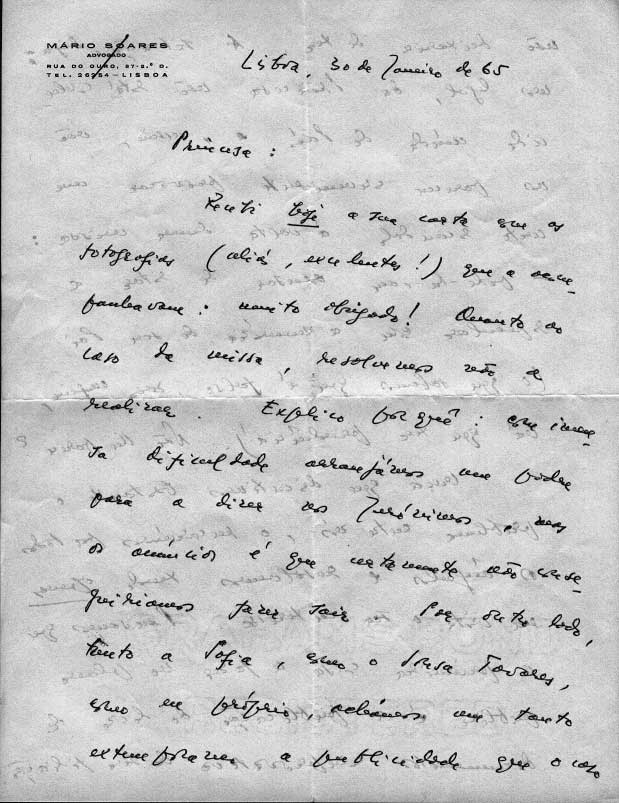 MÁRIO SOARES
ADVOGADO
RUA DO OURO, 87-2.º D.
TEL. 26254 - LISBOA
Lisboa, 30 de Janeiro de 65
Princesa:
Recebi hoje a sua carta que as
fotografias (aliás, excelentes!) que a acom-
panhavam: muito obrigado! Quanto ao
caso da missa, resolvemos não a
realizar. Explico porquê: com imen-
sa dificuldade arranjámos um padre
para a dizer nos Jerónimos, mas
os anúncios é que certamente não conse-
guiríamos fazer sair. Por outro lado,
tanto a Sofia, como o Sousa Tavares,
como eu próprio, achámos um tanto
extemporânea a publicidade que o caso